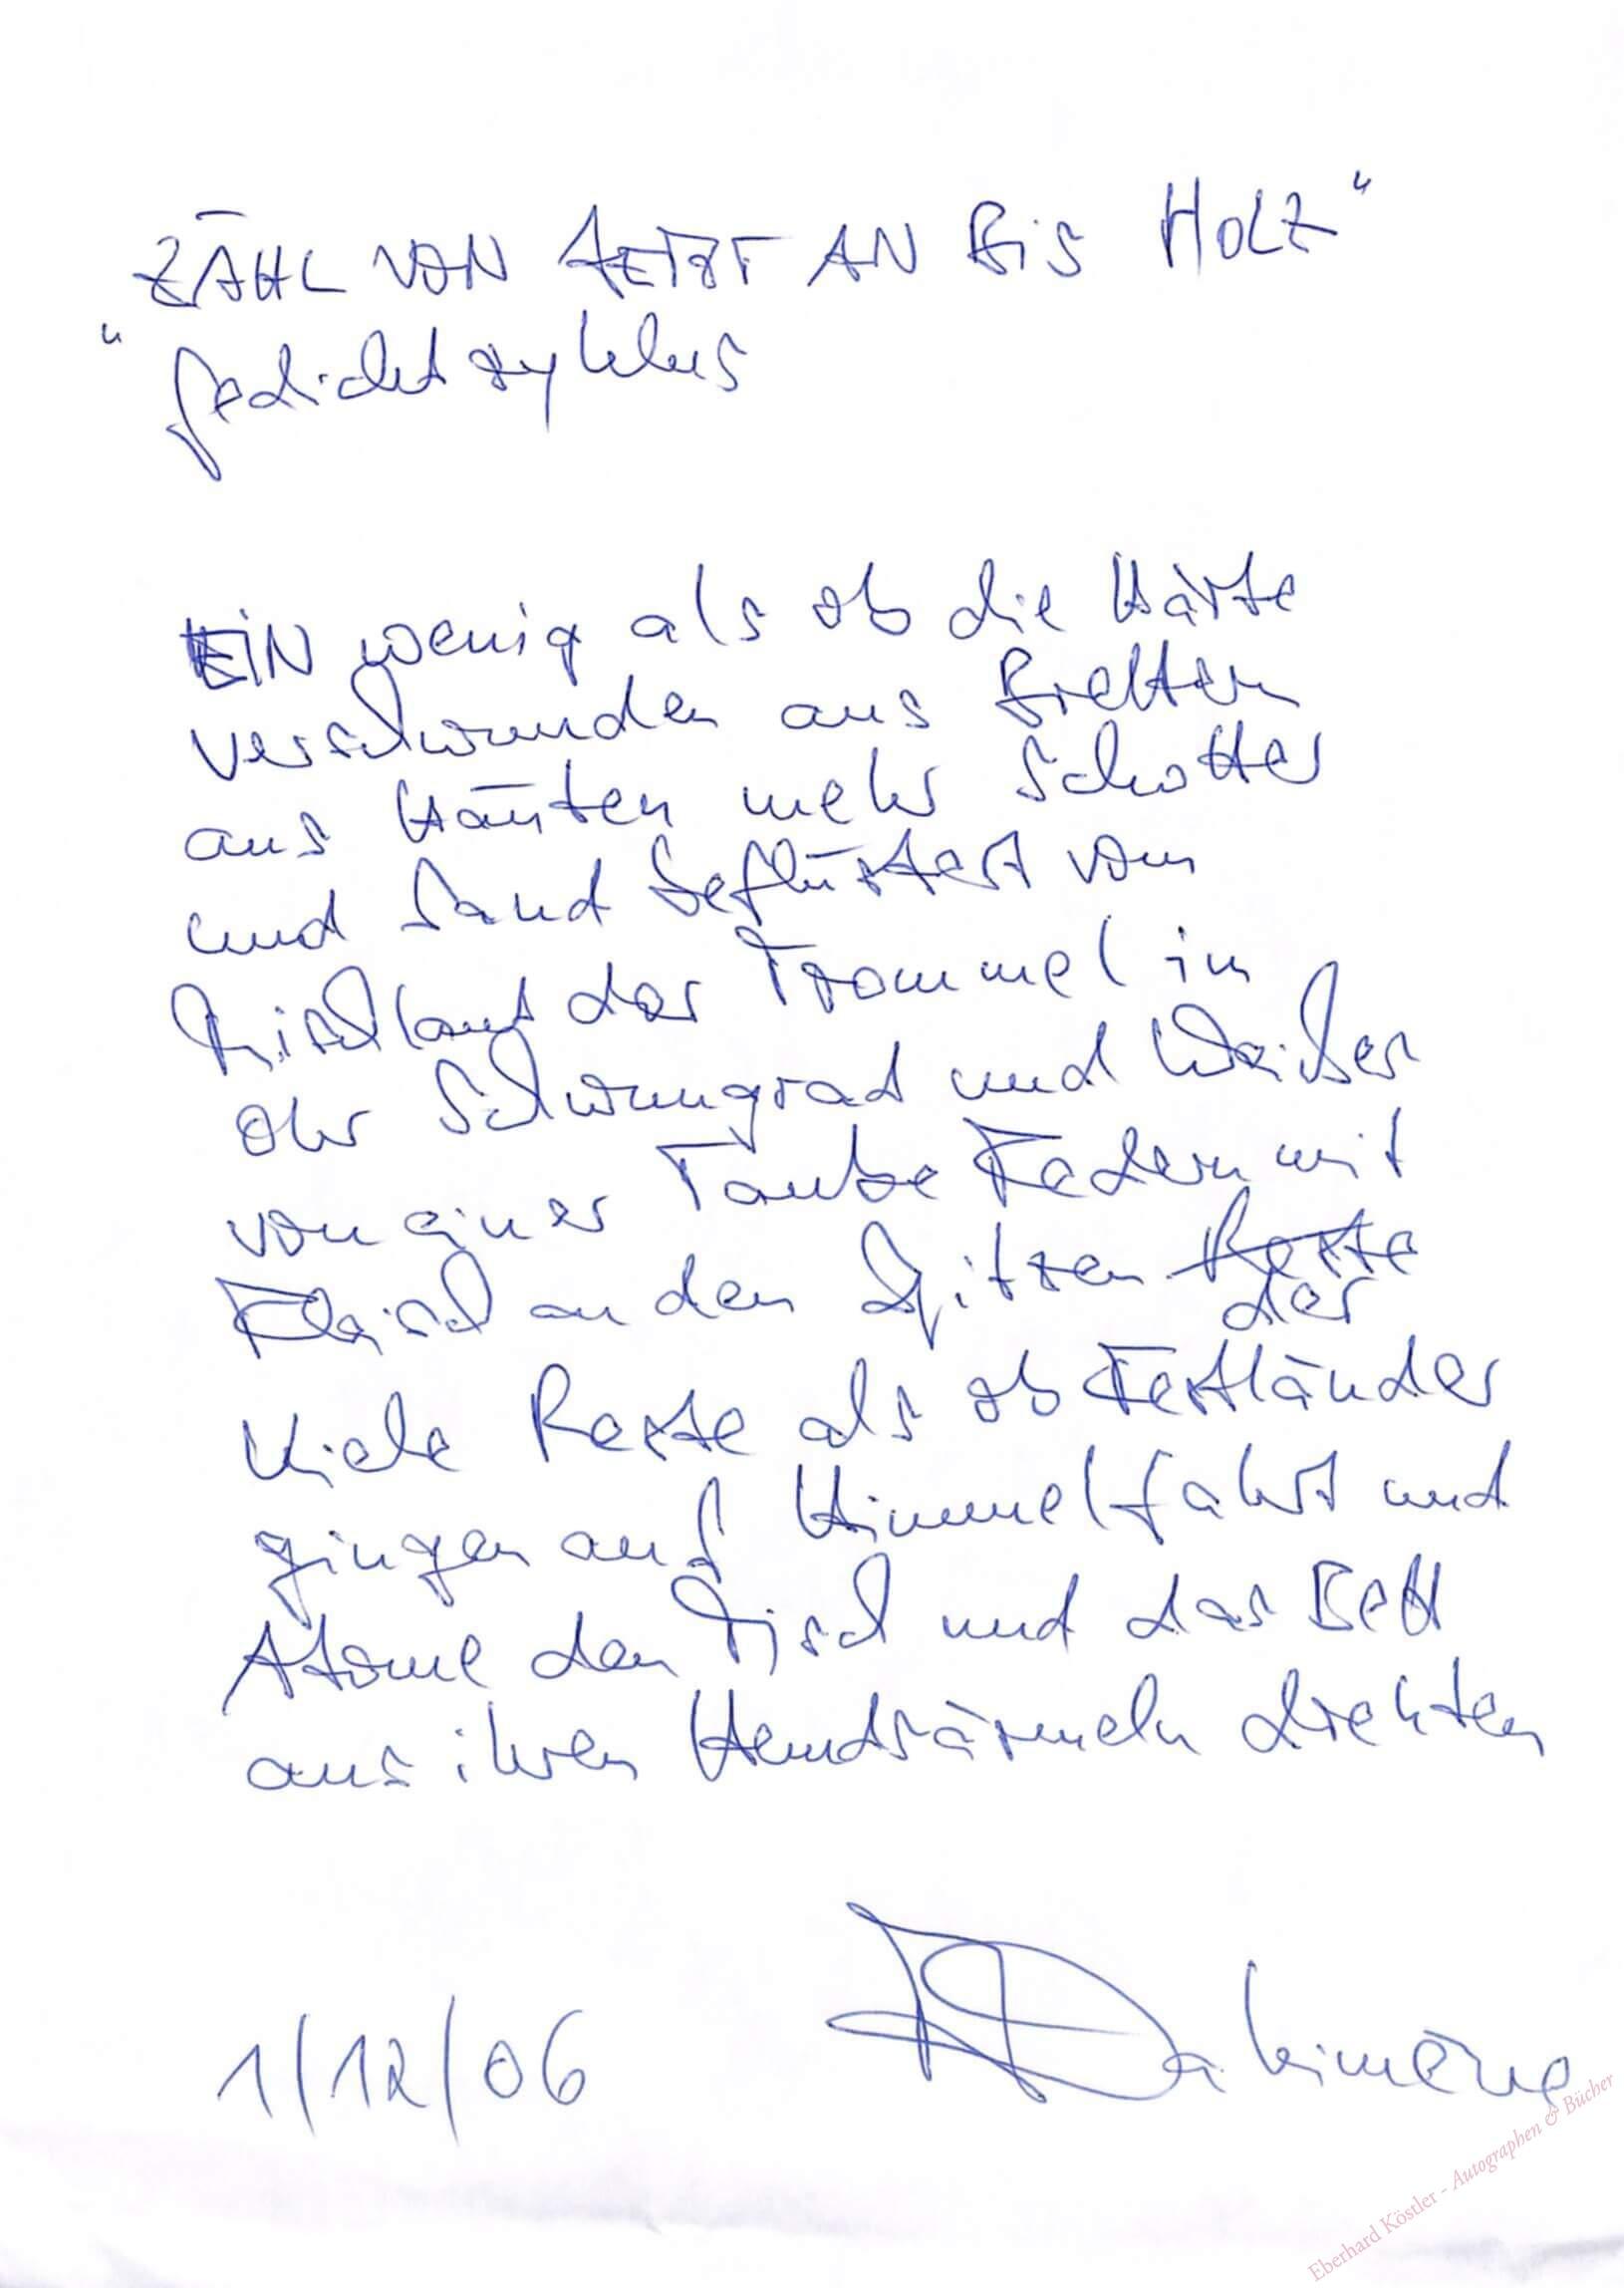 "ZÄHL VON JETZT AN BIS HOLZ"
Gedichtzyklus
EIN wenig als ob die Härte
verschwunden aus Brettern
aus Häuten mehr Schotter
und Sand geflüstert vom
Tischlaut der Trommel im
Ohr Schwungrad und Weiser
von einer Taube Federn mit
Fleisch an den Spitzen Reste
der
Kiele Reste als ob Festländer
gingen auf Himmelfahrt und
Atome den Tisch und das Bett
aus ihren Hemdsärmeln drehten
1/12/06
Eberhard Köstler - Autographen & Bücher